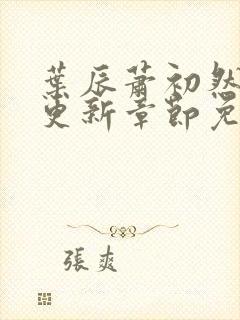 葉辰蕭初然
更新章節免
張爽